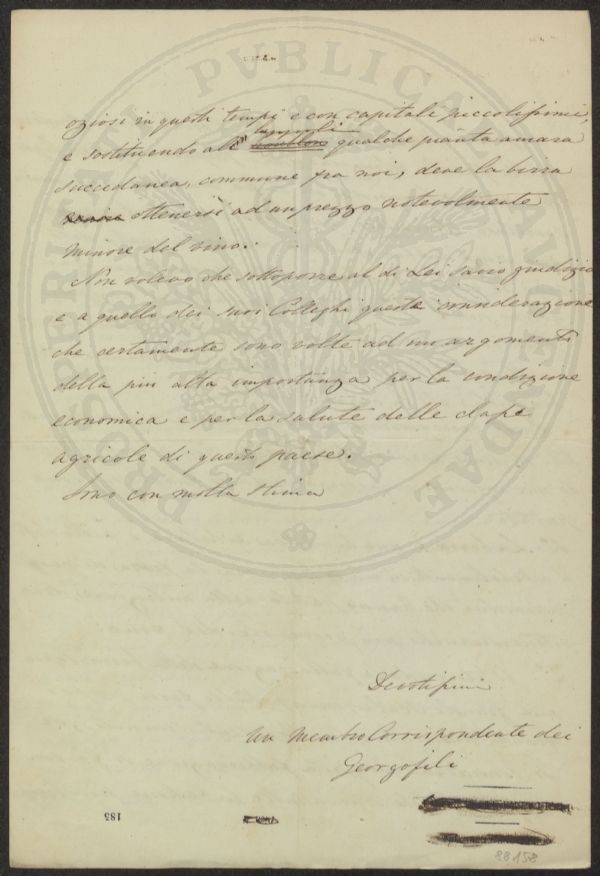 oziosi in questi tempi e con capitali piccolissimi,
luppoli
e sostituendo al houblon qualche pianta amara
succedanea, commune fra noi, deve la birra
ottenersi ad un prezzo notevolmente
minore del vino.
Non volevo che sottoporre al di Lei savio giudizio
e a quello dei suoi Colleghi queste considerazione
che certamente sono volte ad un argomenti
della più alta importanza per la condizione
economica e per la salute delle classi
agricole di questo paese.
Sono con molta stima
Devotissimi
Un Membro Corrispondente dei
Georgofili
183
88158
PROSPERITATI PVBLICAE AVGENDAE